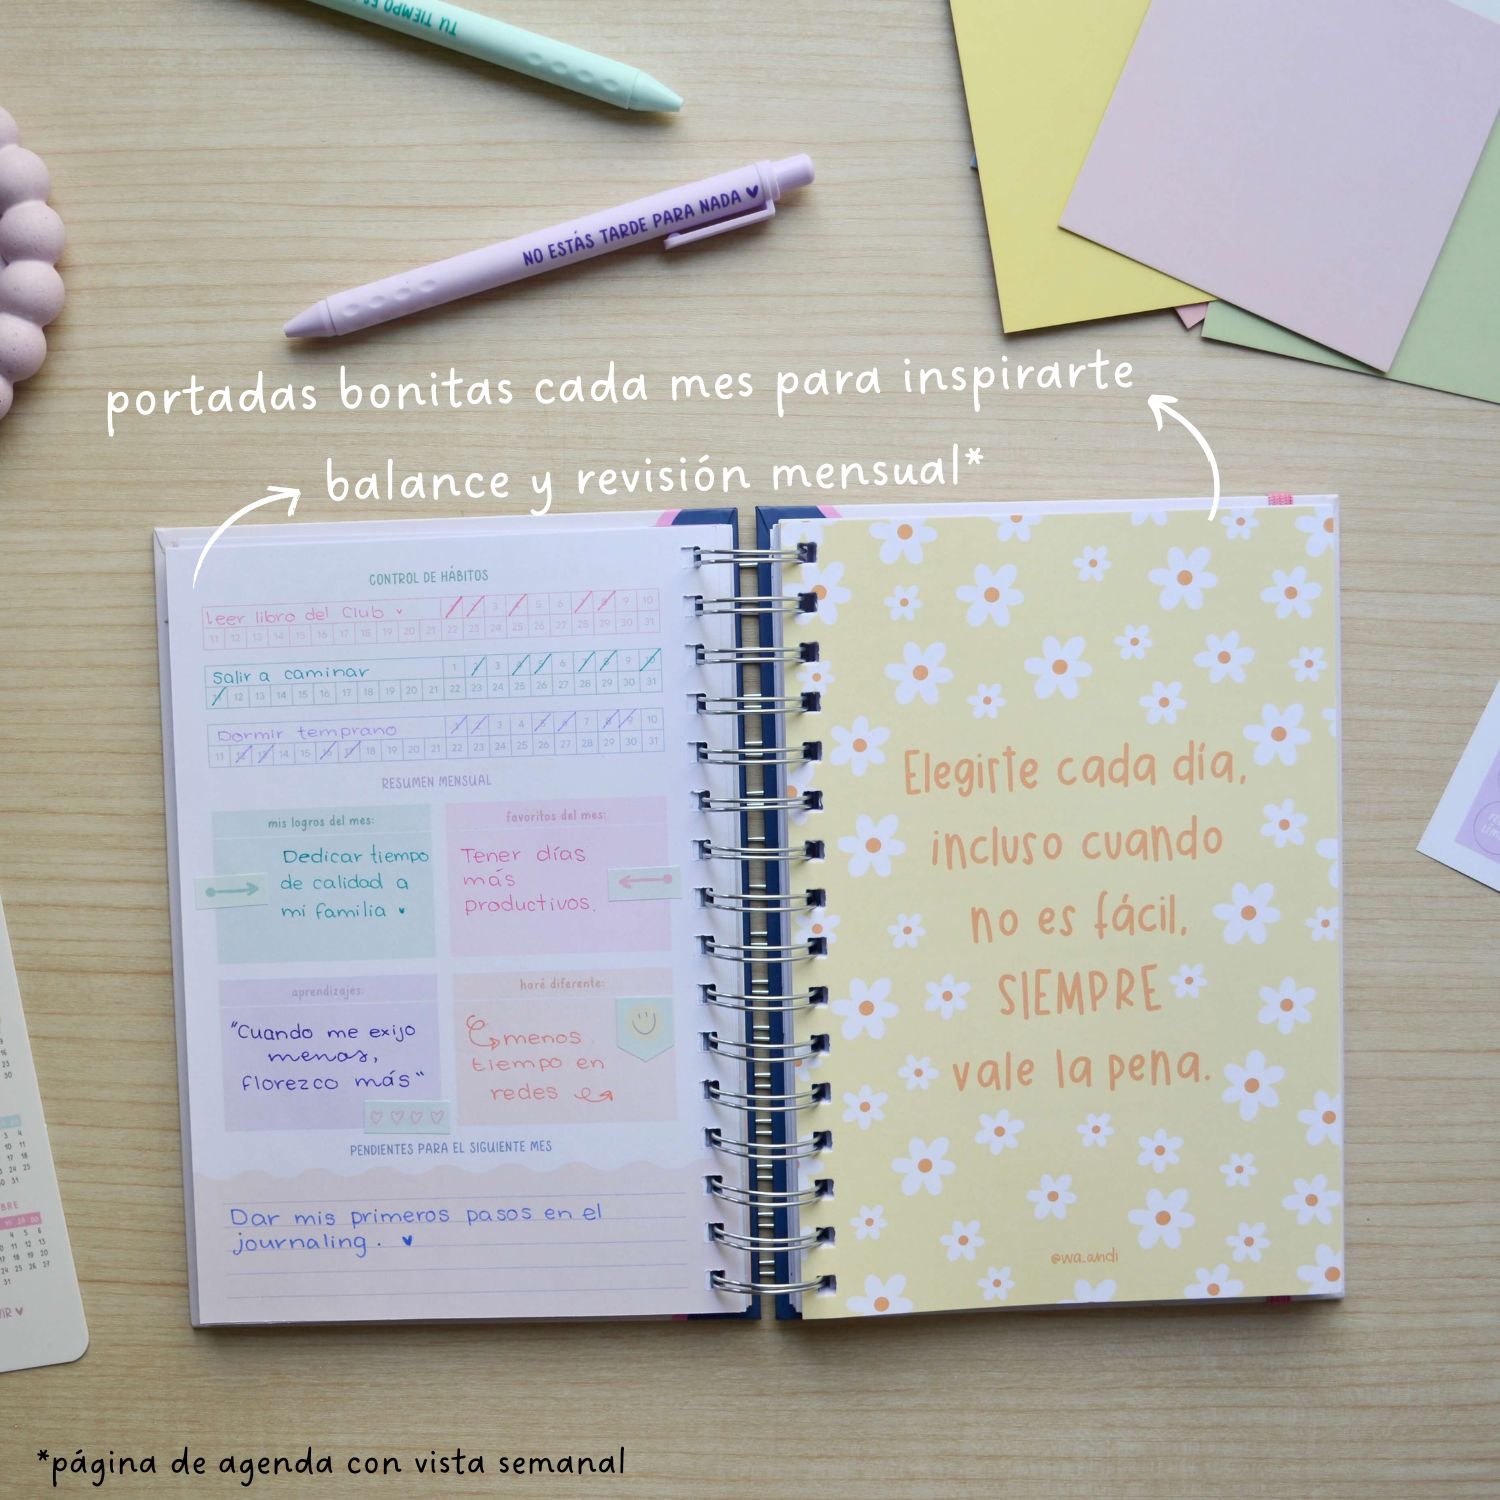 TU TIEMPO ES
NO ESTÁS TARDE PARA NADA ♥
portadas bonitas cada mes para inspirarte
balance y revisión mensual*
CONTROL DE HÁBITOS
Leer libro del Club ♥ 1 2 3 4 5 6 7 8 9 10
11 12 13 14 15 16 17 18 19 20 21 22 23 24 25 26 27 28 29 30 31
Salir a caminar 1 2 3 4 5 6 7 8 9 10
11 12 13 14 15 16 17 18 19 20 21 22 23 24 25 26 27 28 29 30 31
Dormir temprano 1 2 3 4 5 6 7 8 9 10
11 12 13 14 15 16 17 18 19 20 21 22 23 24 25 26 27 28 29 30 31
RESUMEN MENSUAL
mis logros del mes:
Dedicar tiempo
de calidad a
mi familia ♥
favoritos del mes:
Tener días
más
productivos.
aprendizajes:
"Cuando me exijo
menos,
florezco más"
haré diferente:
menos
tiempo en
redes
PENDIENTES PARA EL SIGUIENTE MES
Dar mis primeros pasos en el
journaling. ♥
Elegirte cada día,
incluso cuando
no es fácil,
SIEMPRE
vale la pena.
@wa_andi
*página de agenda con vista semanal